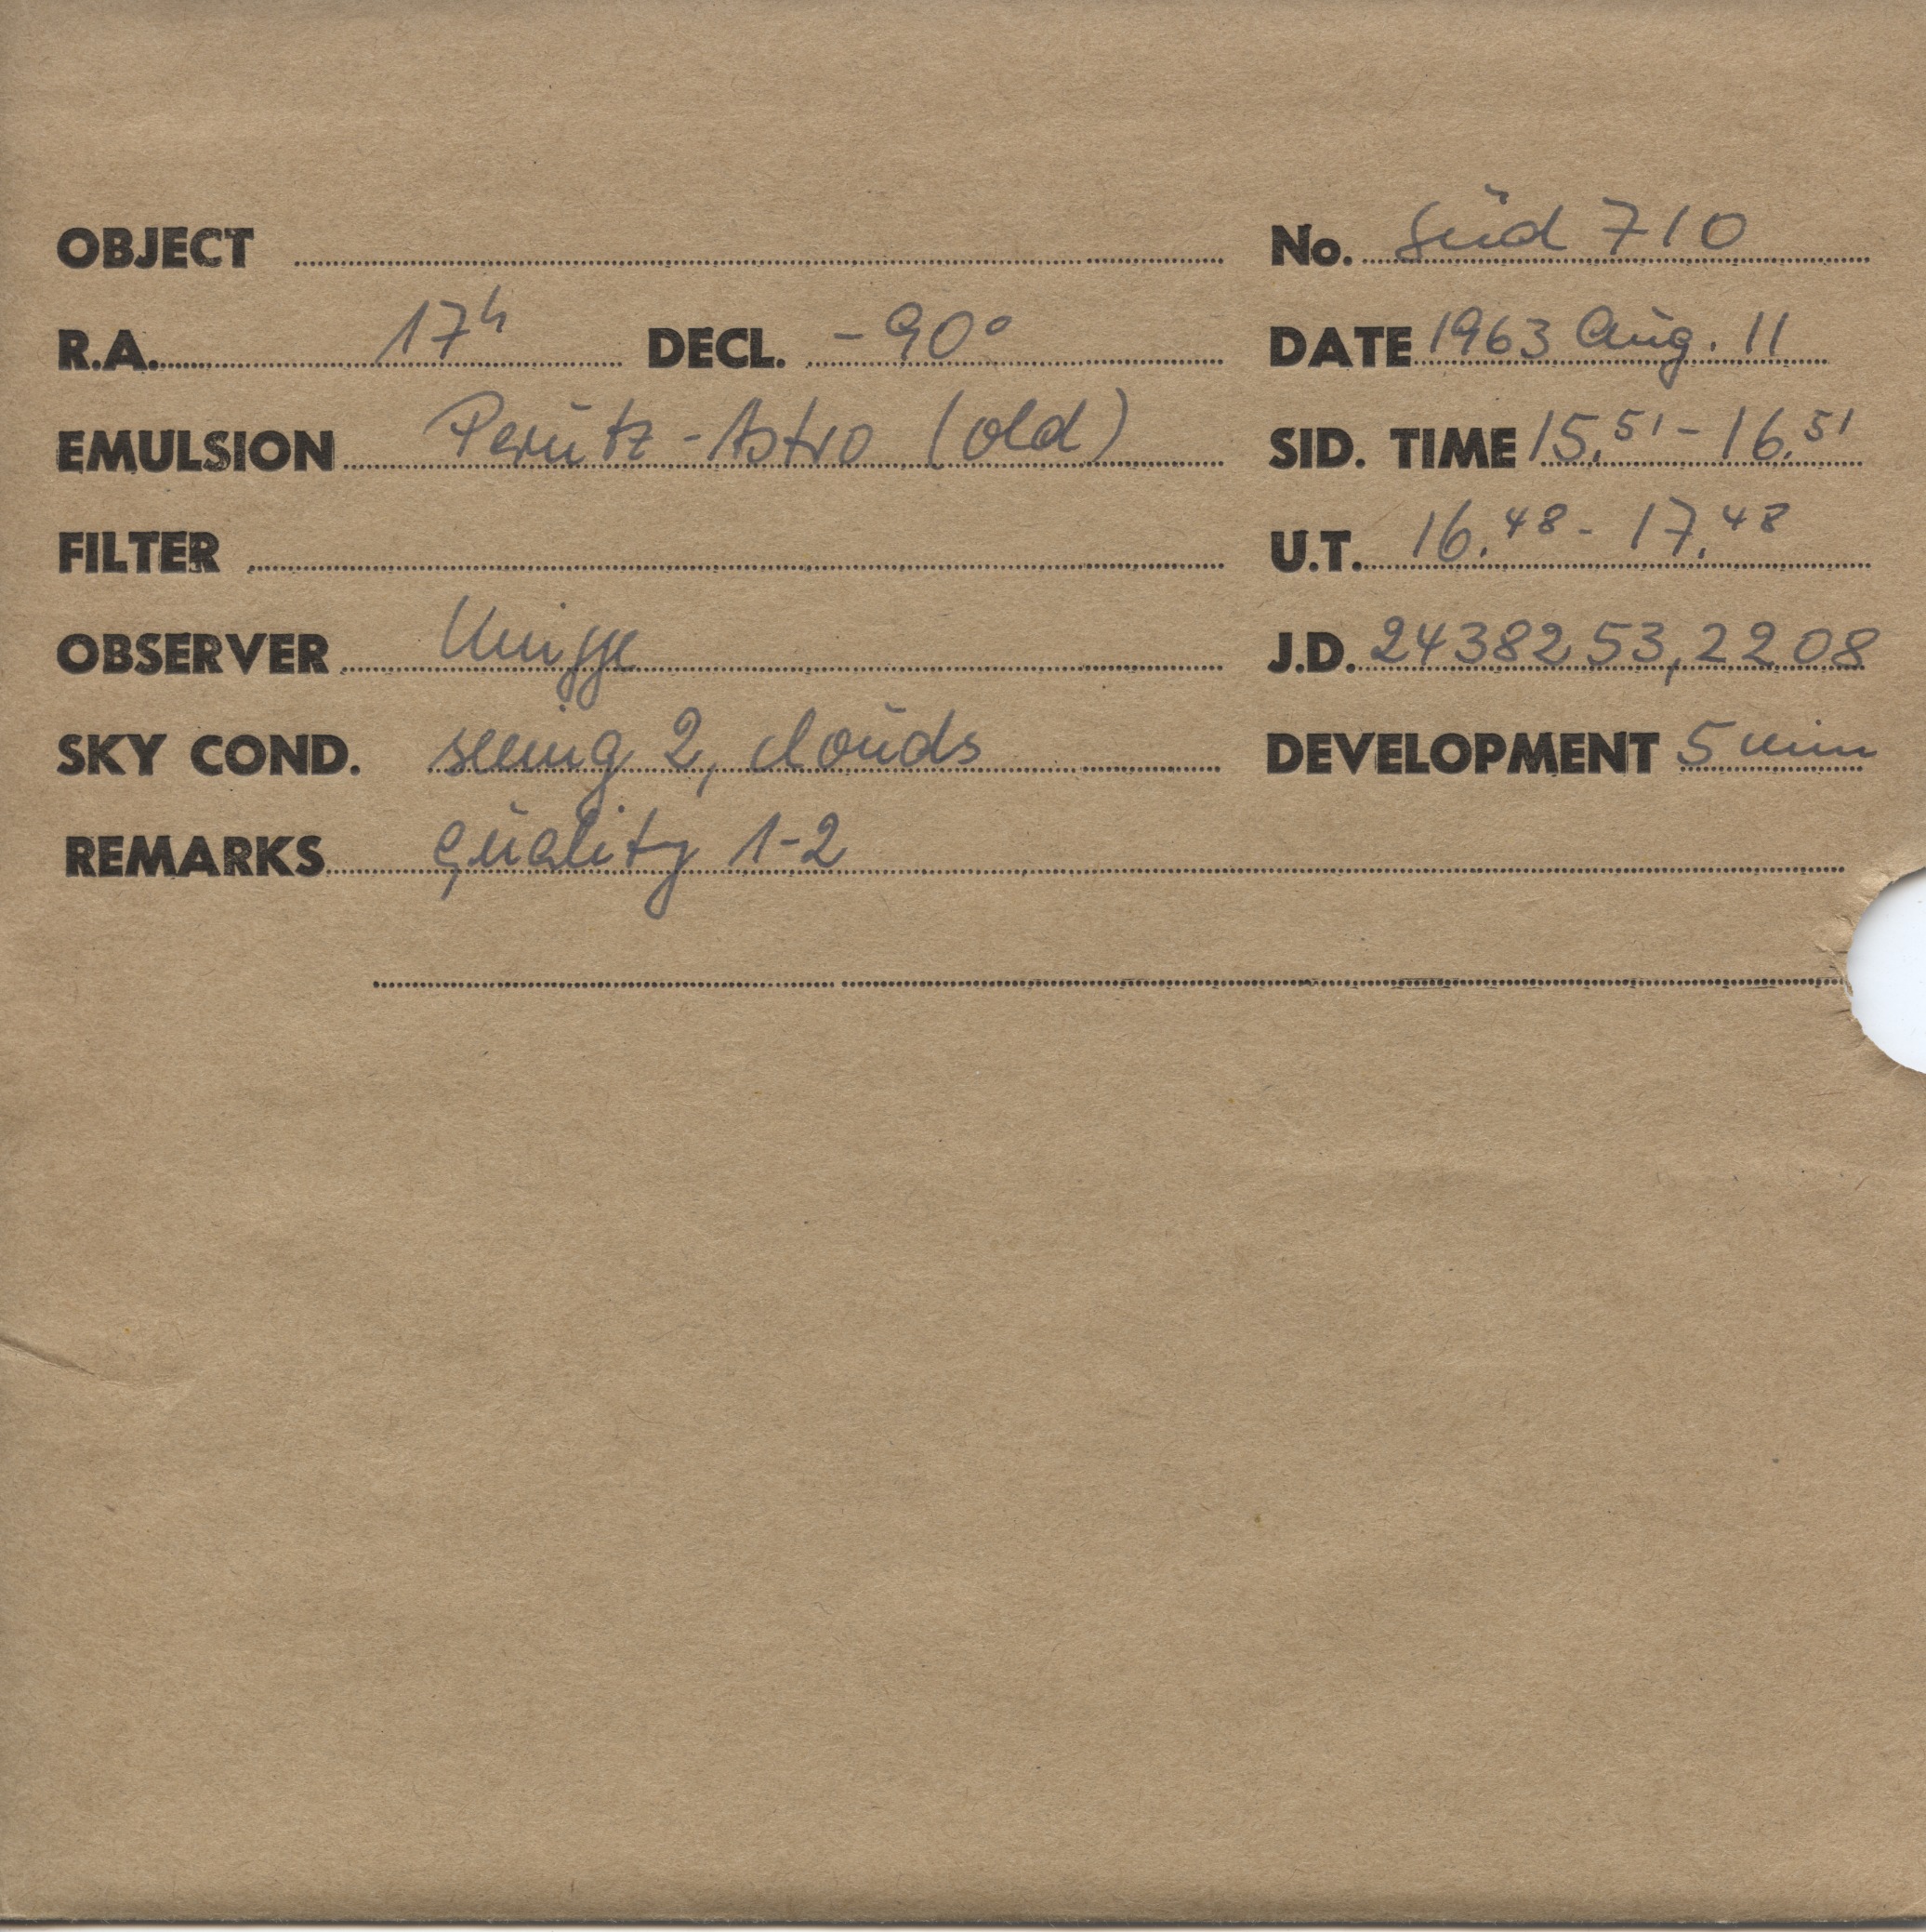 OBJECT No. Süd 710
R.A. 17h DECL. -90° DATE 1963 Aug. 11
EMULSION Perutz-Astro (old) SID. TIME 15.51 - 16.51
FILTER U.T. 16.48 - 17.48
OBSERVER J.D. 2438253,2208
SKY COND. seeing 2, clouds DEVELOPMENT 5 min
REMARKS quality 1-2